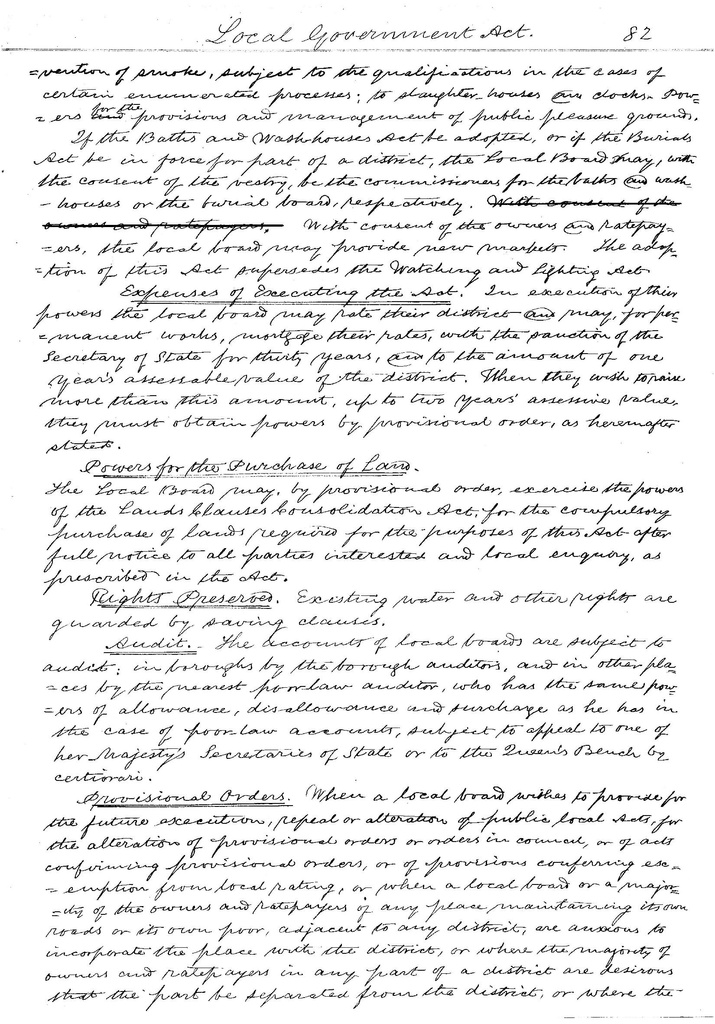 Local Government Act. 82
=vention of smoke, subject to the qualifications in the cases of
certain enumerated processes; to slaughter-houses and clocks. Pow=
=ers for the provisions and management of public pleasure grounds.
If the Baths and Washhouses Act be adopted, or if the Burials
Act be in force for part of a district, the Local Board may, with
the consent of the vestry, be the commissioners for the baths and wash-
-houses or the burial board, respectively. With consent of the
owners and ratepayers. With consent of the owners and ratepay=
=ers, the local board may provide new markets. The adop=
=tion of this Act supersedes the Watching and Lighting Act.
Expenses of Executing the Act. In execution of their
powers the local board may rate their district and may, for per=
=manent works, mortgage their rates, with the sanction of the
Secretary of State for thirty years, and to the amount of one
year's assessable value of the district. When they wish to raise
more than this amount, up to two years' assessive value,
they must obtain powers by provisional order, as hereafter
stated.
Powers for the Purchase of Land.
The Local Board may, by provisional order, exercise the powers
of the Lands Clauses Consolidation Act, for the compulsory
purchase of lands required for the purposes of this Act after
full notice to all parties interested and local enquiry, as
prescribed in the Act.
Rights Preserved. Existing water and other rights are
guarded by saving clauses.
Audit. The accounts of local boards are subject to
audit; in boroughs by the borough auditors, and in other pla=
=ces by the nearest poorlaw auditor, who has the same pow=
=ers of allowance, disallowance and surcharge as he has in
the case of poorlaw accounts, subject to appeal to one of
her Majesty's Secretaries of State or to the Queen's Bench by
certiorari.
Provisional Orders. When a local board wishes to provide for
the future execution, repeal or alteration of public local Acts, for
the alteration of provisional orders or orders in council, or of acts
confirming provisional orders, or of provisions conferring exe=
=emption from local rating, or when a local board or a major=
=ity of the owners and ratepayers of any place maintaining its own
roads or its own poor, adjacent to any district, are anxious to
incorporate the place with the district, or where the majority of
owners and ratepayers in any part of a district are desirous
that the part be separated from the district, or where the